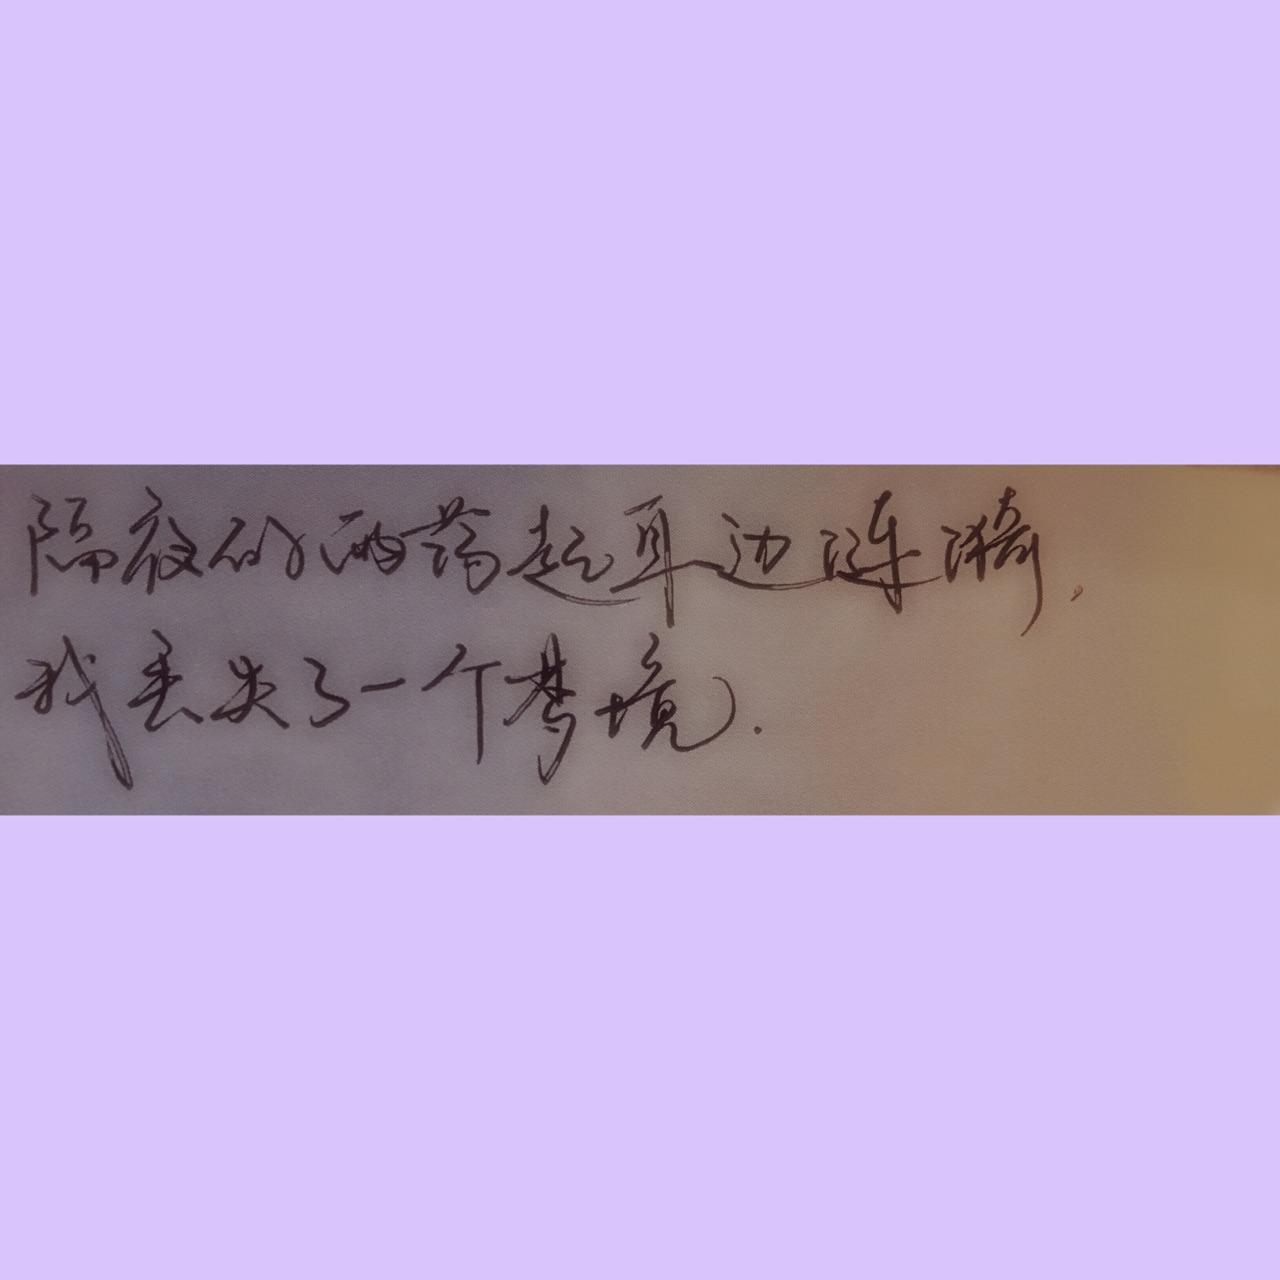 隔夜的雨荡起耳边涟漪,
我丢失了一个梦境.